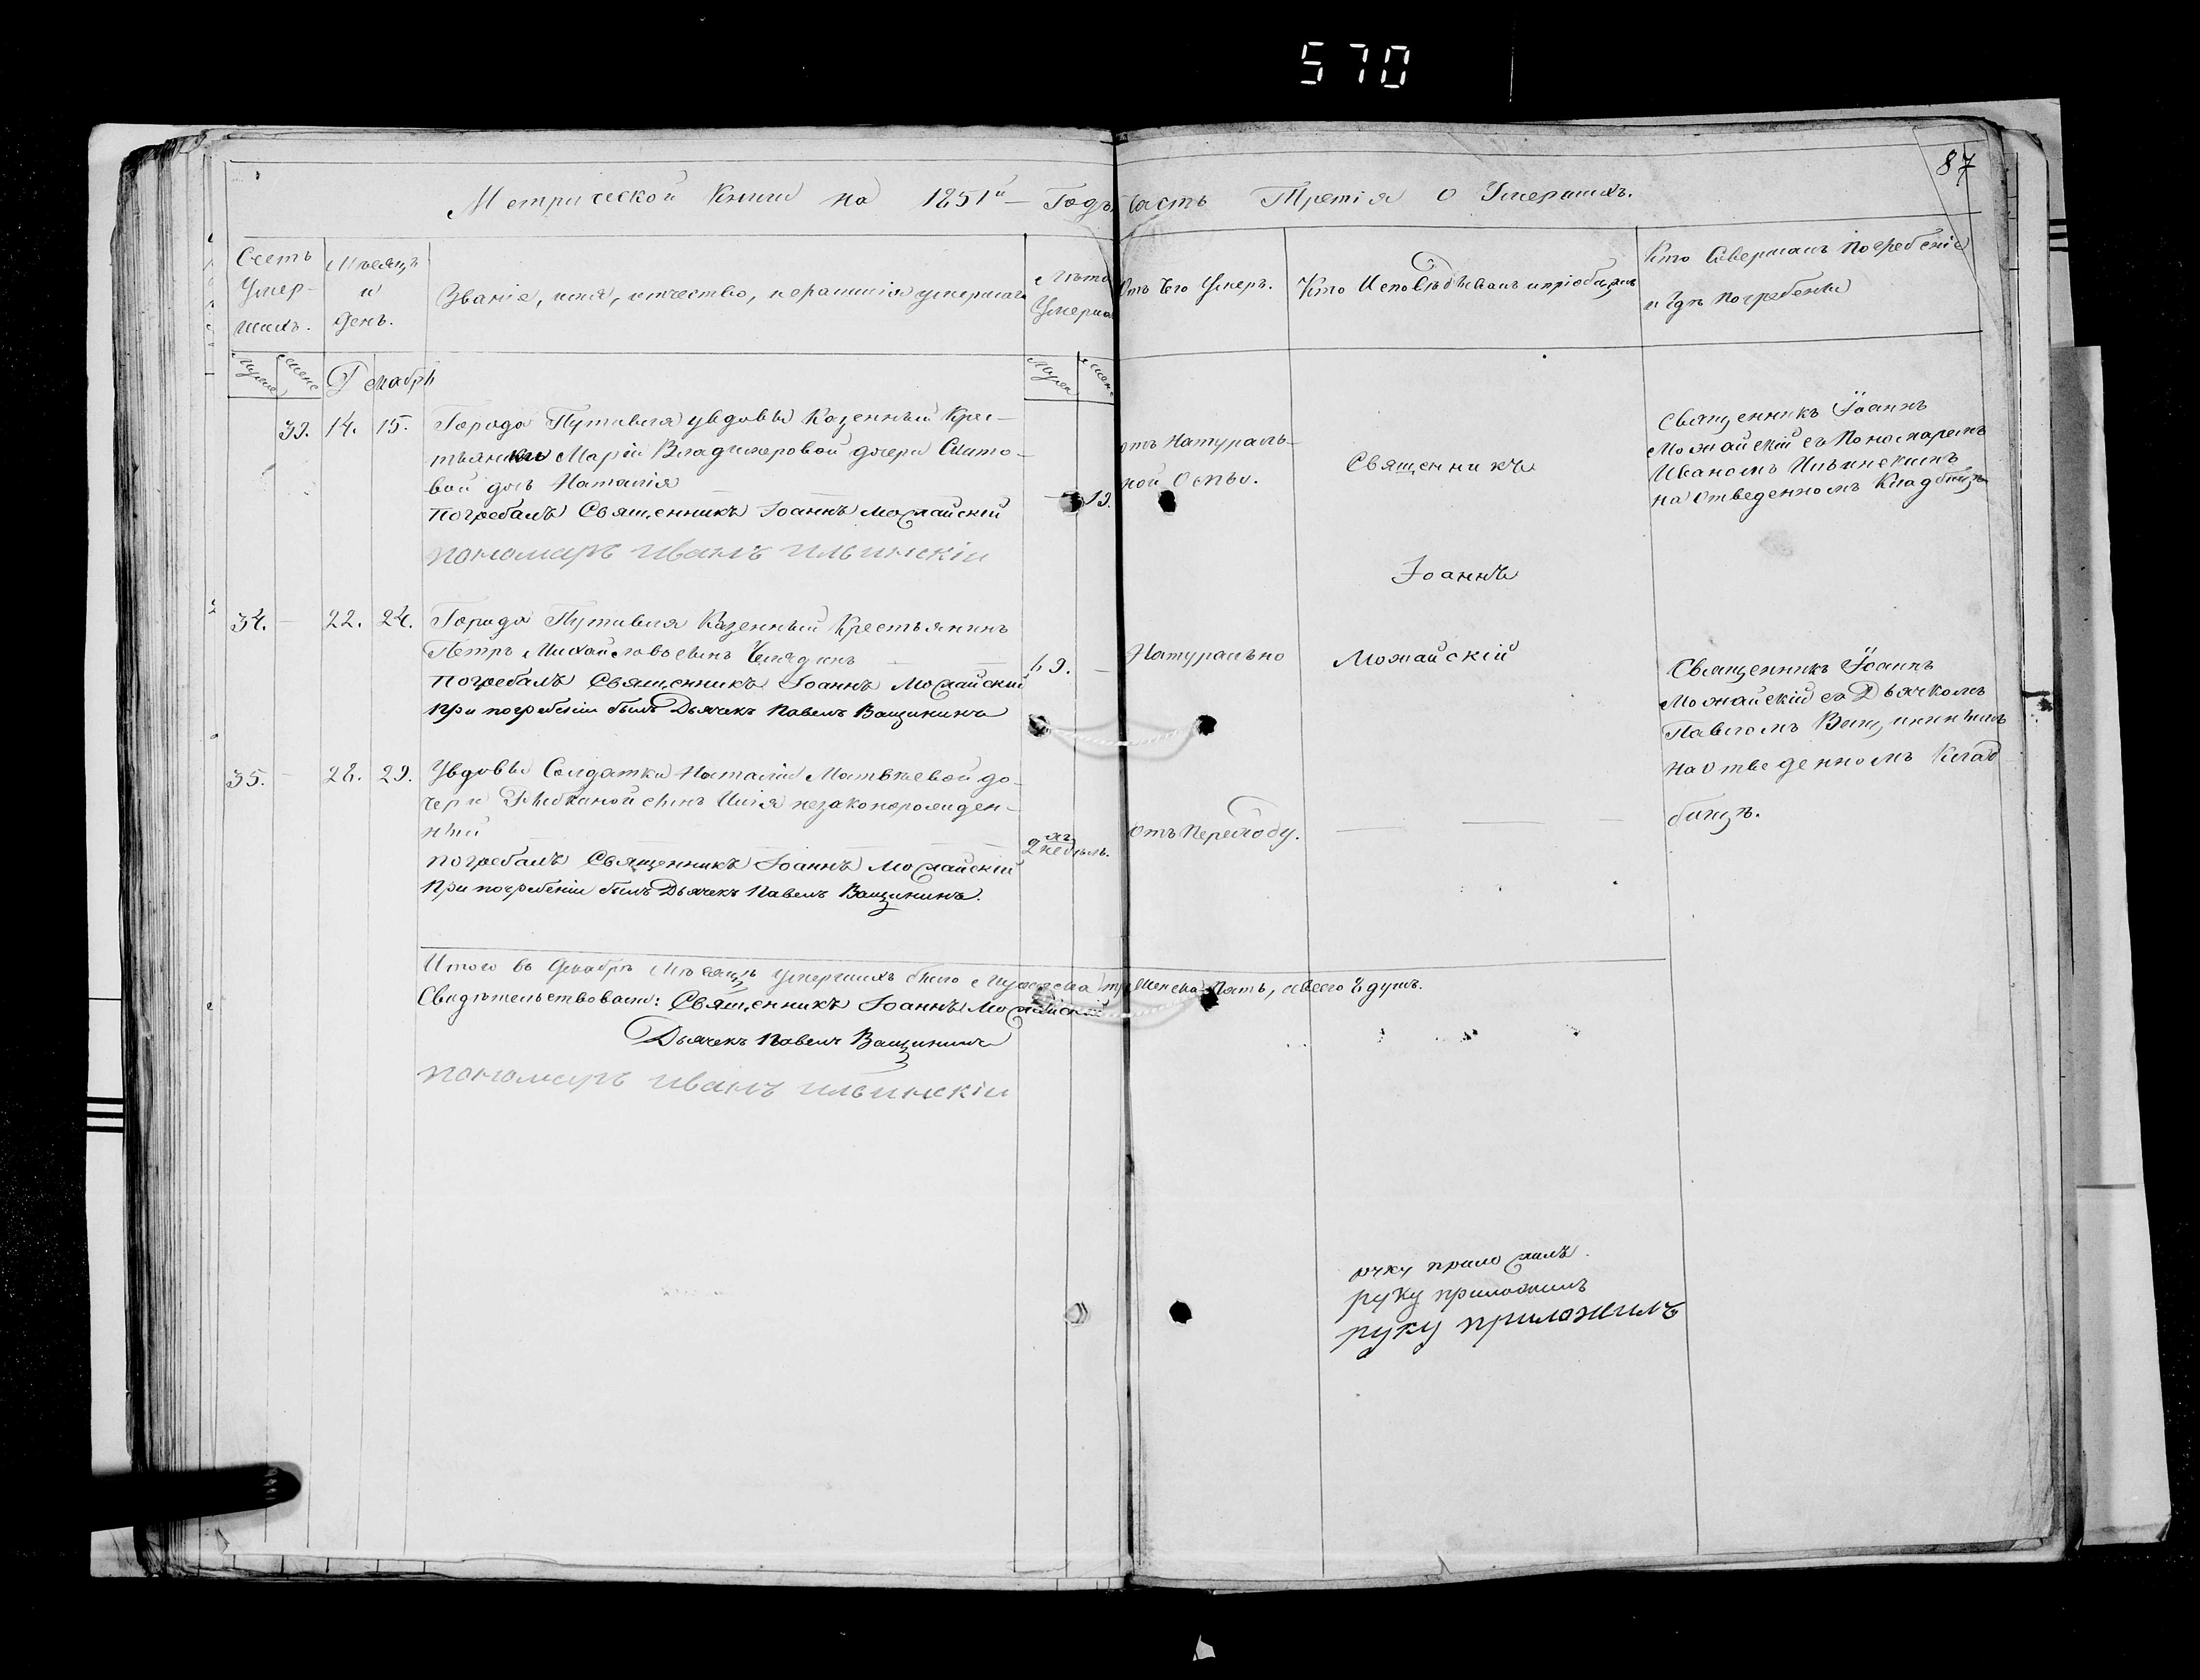 570
87
Метрической Книги на 1851й Годъ Часть Третія о Умершихъ.
Счетъ Умер-шихъ.
Мѣсяцъ и день.
Званіе, имя, отчество, и фамилія умершаго
Лѣта Умерша
Отъ Чего Умеръ.
Кто Исповѣдывалъ и пріобщалъ
Кто Совершалъ Погребеніе
и гдѣ Погребены
Муже Женс Декабрь Муже Жен
39. 14. 15. Города Путивля увдовы Казенный Крес-
тьянки Маріи Владимеровой дочери
вой дочь Наталія
19.
отъ Натураль-
ной Оспы.
Погребалъ Священникъ Іоаннъ Можайскій
пономарь иванъ ильинскіи
Священникъ
Іоаннъ
Можайскій
Священникъ Іоаннъ
Можайскій съ Пономаремъ
Иваномъ Ильинскимъ
на отведенномъ Кладбищѣ
34. 22. 24. Города Путивля Казенный Крестьянинъ
Петръ Михайловъ сынъ
69.
Натурально
Погребалъ Священникъ Іоаннъ Можайскій
При погребеніи былъ Дьячекъ Павелъ Ващининъ
Священникъ Іоаннъ
Можайскій съ Дьячкомъ
Павломъ Ващининымъ
на отведенномъ Клад
бищѣ.
35. 28. 29. Увдовы Солдатки Наталіи Матвѣевой до-
чери сынъ Илія незаконорожден-
ный
2хъ недѣль.
отъ Переходу.
Погребалъ Священникъ Іоаннъ Можайскій
При погребеніи былъ Дьячекъ Павелъ Ващининъ.
Итого въ Декабрѣ Мѣсяцѣ умершихъ было Мужеска три Женска Пять, а всего 8 душъ.
Свидѣтельствовали: Священникъ Іоаннъ Можайскій
Дьячекъ Павелъ Ващининъ
пономарь иванъ ильинскіи
руку приложилъ.
руку приложилъ
руку приложилъ